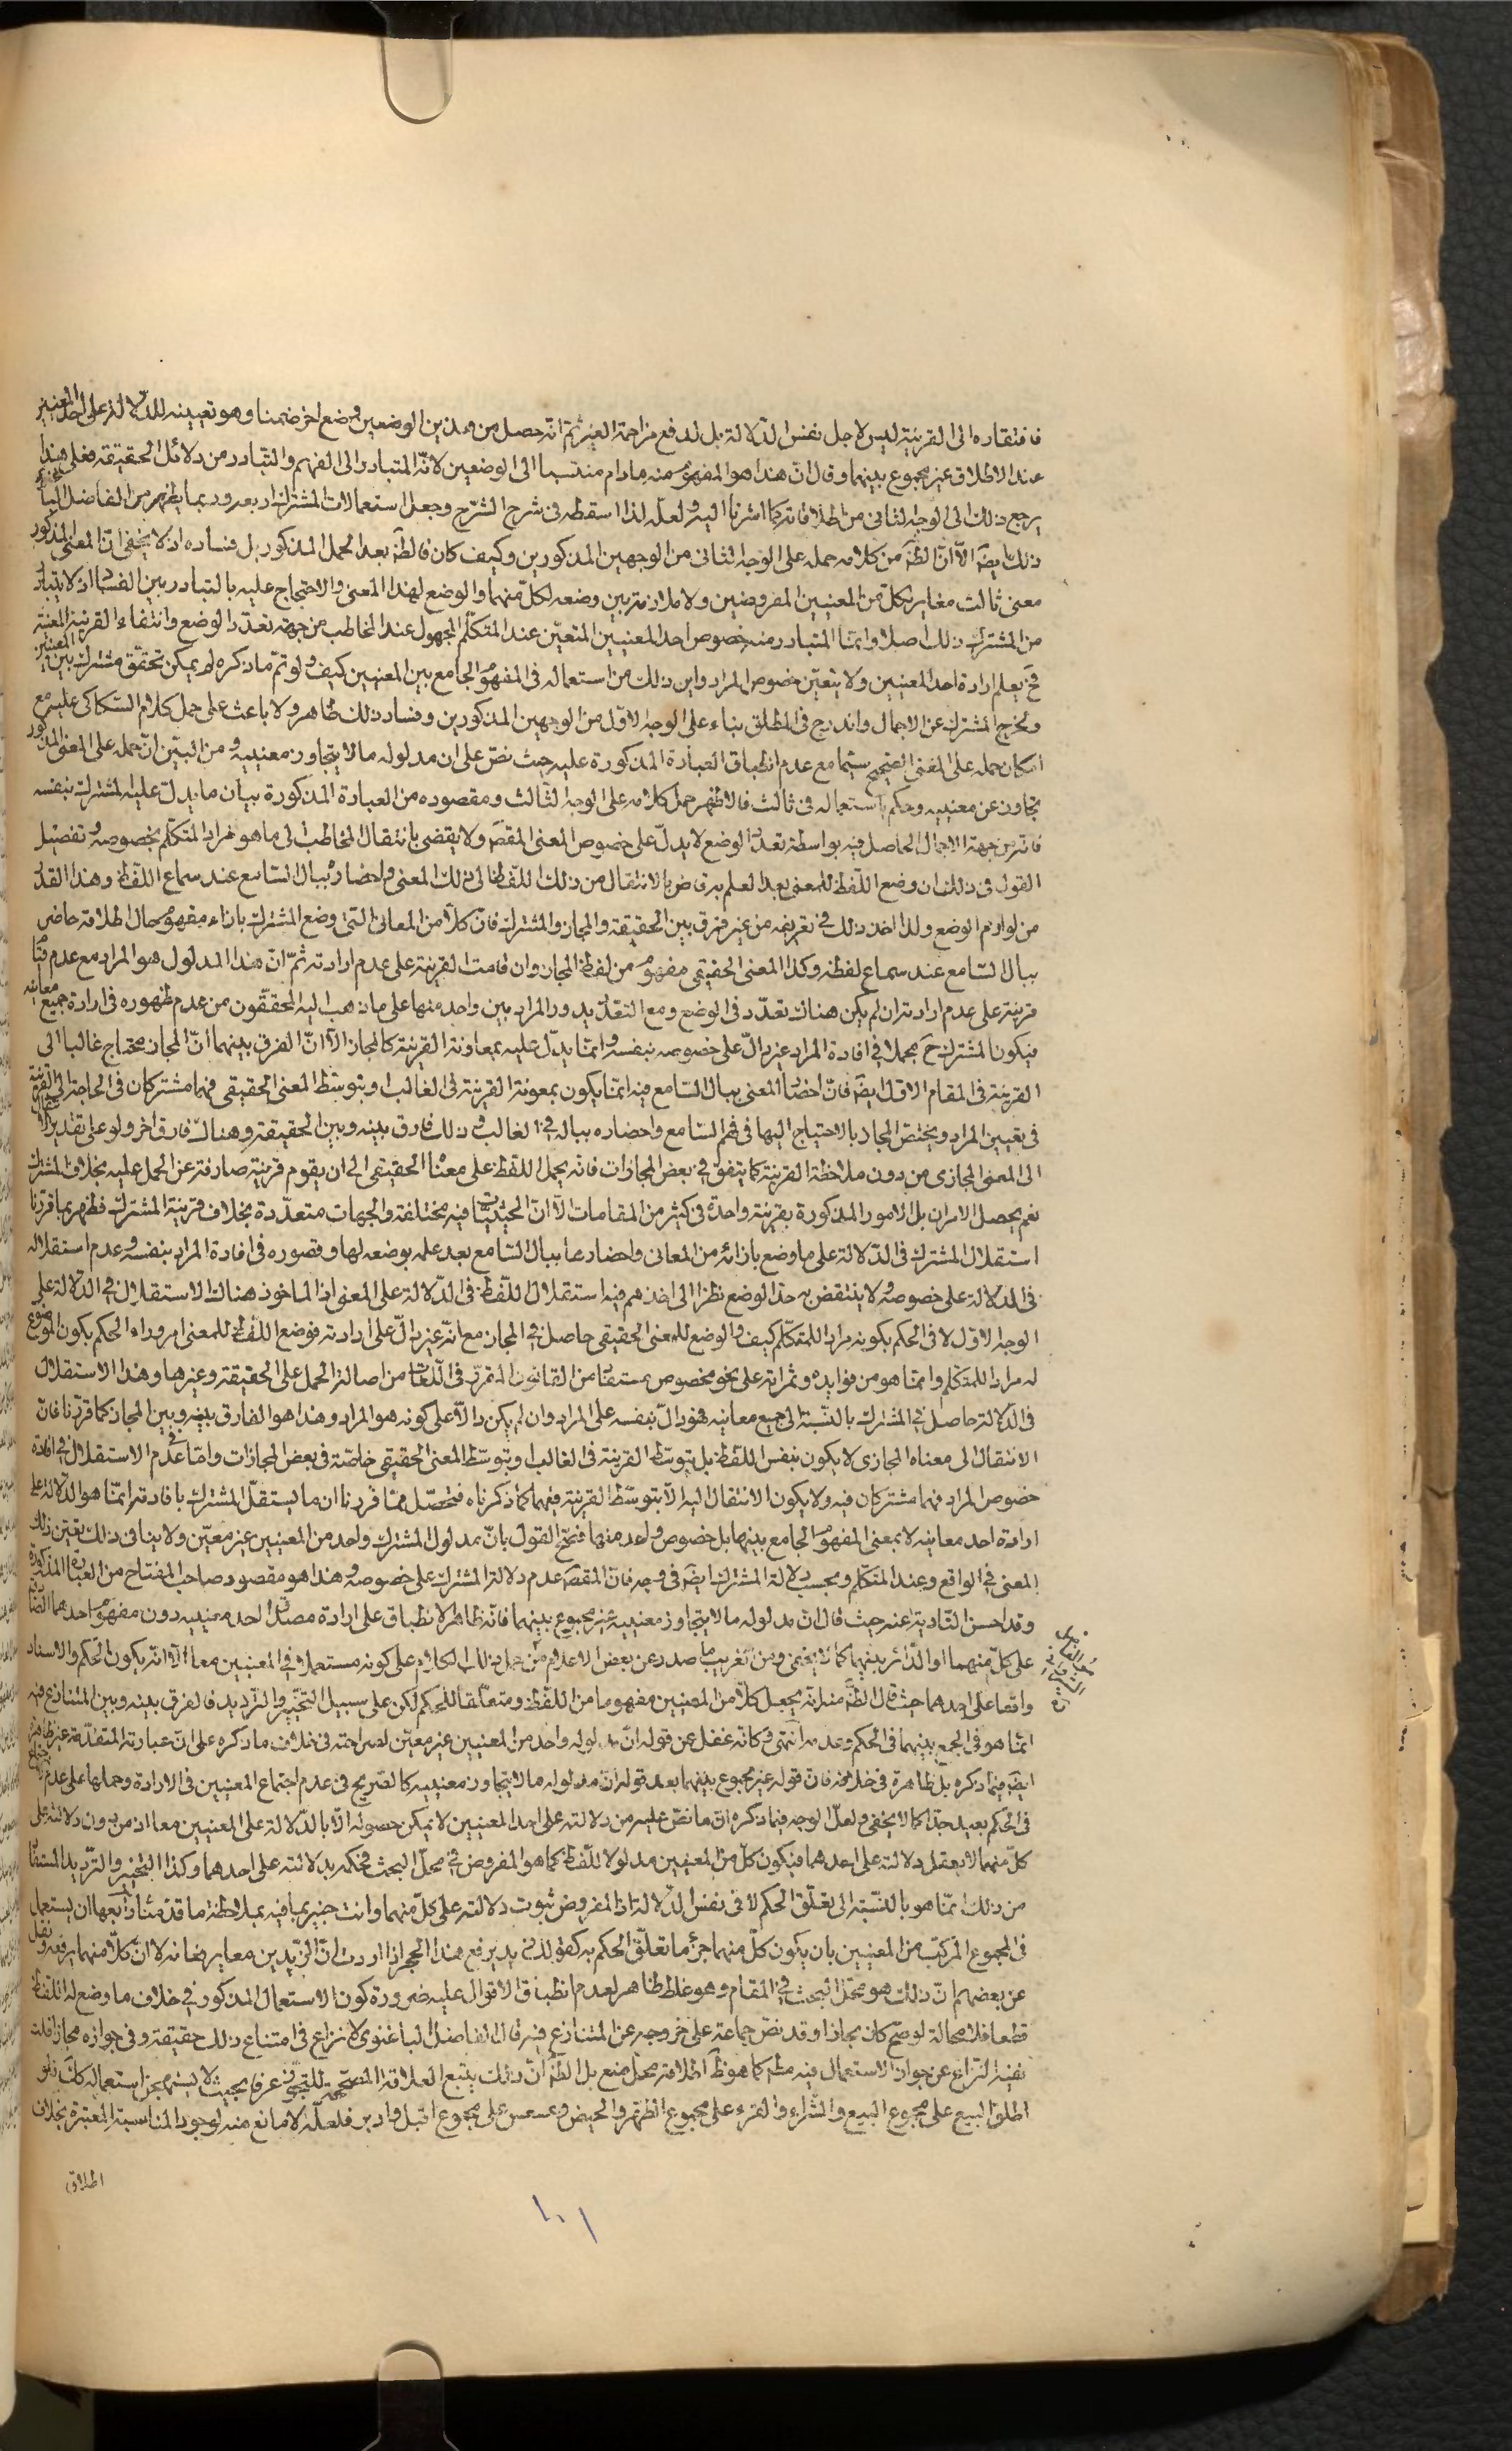 فافتقاره الى القرينة ليس لاجل نفس الدلالة بل لدفع مزاحمة الغير ثم انه حصل من هذين الوضعين وضع اخر ضمنا وهو تعيينه للدلالة على احد المعنيين
عند الاطلاق غير مجموع بينهما وقال ان هذا هو المفهوم منه مادام منتسبا الى الوضعين لانه المتبادر الى الفهم والتبادر من دلائل الحقيقة فعلى هذا
يرجع ذلك الى الوجه الثاني من اطلاقاته كما اشرنا اليه ولعله لذا اسقطه في شرح الشرح وجعل استعمالات المشترك اربعة وربما يظهر من الفاضل
ذلك ايضا الا ان الظ من كلامه حمله على الوجه الثاني من الوجهين المذكورين وكيف كان فالظ بعد المحمل المذكور بل فساده اذ لا يخفى ان المعنى المذكور
معنى ثالث مغاير لكل من المعنيين المفروضين ولا ملازمة بين وضعه لكل منهما والوضع لهذا المعنى والاحتجاج عليه بالتبادر بين الفساد اذ لا يتبادر
من المشترك ذلك اصلا وانما المتبادر منه خصوص احد المعنيين المتعين عند المتكلم المجهول عند المخاطب من جهة تعدد الوضع وانتفاء القرينة المعينة
فح يعلم ارادة احد المعنيين ولا يتعين خصوص المراد واين ذلك من استعماله في المفهوم الجامع بين المعنيين كيف ولو تم ما ذكره لم يمكن تحقق مشترك بين المعنيين
ولخرج المشترك عن الاجمال واندرج في المطلق بناء على الوجه الاول من الوجهين المذكورين وفساد ذلك ظاهر ولا باعث على حمل كلام السكاكي عليه مع
امكان حمله على المعنى الصحيح سيما مع عدم انطباق العبارة المذكورة عليه حيث نص على ان مدلوله ما لا يتجاوز معنييه ومن البين ان حمله على المعنى المذكور
تجاوز عن معنييه وحكم باستعماله في ثالث فالاظهر حمل كلامه على الوجه الثالث ومقصوده من العبارة المذكورة بيان ما يدل عليه المشترك بنفسه
فانه من جهة الاجمال الحاصل فيه بواسطة تعدد الوضع لا يدل على خصوص المعنى المقص ولا يقضى بانتقال المخاطب الى ما هو مراد المتكلم بخصوصه وتفصيل
القول في ذلك ان وضع اللفظ للمعنى بعد العلم به قاض بالانتقال من ذلك اللفظ الى ذلك المعنى واحضاره ببال السامع عند سماع اللفظ وهذا القدر
من لوازم الوضع ولذا اخذ ذلك في تعريفه من غير فرق بين الحقيقة والمجاز والمشترك فان كلا من المعاني التي وضع المشترك بازاءه مفهوم حال اطلاقه حاضر
ببال السامع عند سماع لفظه وكذا المعنى الحقيقي مفهوم من لفظ المجاز وان قامت القرينة على عدم ارادته ثم ان هذا المدلول هو المراد مع عدم قيام
قرينة على عدم ارادته ان لم يكن هناك تعدد في الوضع ومع التعدد يدور المراد بين واحد منها على ما ذهب اليه المحققون من عدم ظهوره في ارادة جميع معانيه
فيكون المشترك ح مجملا في افادة المراد غير دال على خصوصه بنفسه وانما يدل عليه بمعاونة القرينة كالمجاز الا ان الفرق بينهما ان المجاز محتاج غالبا الى
القرينة في المقام الاول ايضا فان احضار المعنى ببال السامع فيه انما يكون بمعونة القرينة في الغالب او بتوسط المعنى الحقيقي فهما مشتركان في الحاجة الى القرينة
في تعيين المراد ويختص المجاز بالاحتياج اليها في فهم السامع واحضاره بباله في الغالب وذلك فارق بينه وبين الحقيقة وهناك فارق اخر ولو على تقدير
الى المعنى المجازي من دون ملاحظة القرينة كما يتفق في بعض المجازات فانه يحمل اللفظ على معناه الحقيقي الى ان يقوم قرينة صارفة عن الحمل عليه بخلاف المشترك
نعم يحصل الامران بل الامور المذكورة بقرينة واحدة في كثير من المقامات الا ان الحيثيات فيه مختلفة والجهات متعددة بخلاف قرينة المشترك فظهر بما قررنا
استقلال المشترك في الدلالة على ما وضع بازائه من المعاني واحضارها ببال السامع بعد علمه بوضعه لها وقصوره في افادة المراد بنفسه وعدم استقلاله
في الدلالة على خصوصه ولا ينتقض به حد الوضع نظرا الى اخذهم فيه استقلال اللفظ في الدلالة على المعنى اذ الماخوذ هناك الاستقلال في الدلالة على
الوجه الاول لا في الحكم بكونه مراد المتكلم كيف والوضع للمعنى الحقيقي حاصل في المجاز مع انه غير دال على ارادته فوضع اللفظ للمعنى امر وراء الحكم بكون الموضوع
له مرادا للمتكلم وانما هو من فوايده وثمراته على نحو مخصوص مستفاد من القانون المقرر في اللغات من اصالة الحمل على الحقيقة وغيرها وهذا الاستقلال
في الدلالة حاصل في المشترك بالنسبة الى جميع معانيه فهو دال بنفسه على المراد وان لم يكن دالا على كونه هو المراد وهذا هو الفارق بينه وبين المجاز كما قررنا فان
الانتقال الى معناه المجازي لا يكون بنفس اللفظ بل بتوسط القرينة في الغالب او بتوسط المعنى الحقيقي خاصة في بعض المجازات واما عدم الاستقلال في افادة
خصوص المراد فهما مشتركان فيه ولا يكون الانتقال اليه الا بتوسط القرينة فيهما كما ذكرناه فتحصل مما قررنا ان ما يستقل المشترك بافادته انما هو الدلالة على
ارادة احد معانيه لا بمعنى المفهوم الجامع بينها بل خصوص واحد منها فتح القول بان مدلول المشترك واحد من المعنيين غير معين ولا ينافي ذلك تعين ذلك
المعنى في الواقع وعند المتكلم وبحسب دلالة المشترك ايضا في وجه فان المقص عدم دلالة المشترك على خصوصه وهذا هو مقصود صاحب المفتاح من العبارة المذكورة
وقد احسن التادية عنه حيث قال ان مدلوله ما لا يتجاوز معنييه غير مجموع بينهما فانه ظاهر الانطباق على ارادة مصداق احد معنييه دون مفهوم احدهما الصادق
على كل منهما او الدائر بينهما كما لا يخفى ومن الغريب ما صدر عن بعض الاعلام من حمل ذلك الكلام على كونه مستعملا في المعنيين معا الا انه يكون الحكم والاسناد
واقعا على احدهما حيث قال الظ منه انه يجعل كلا من المعنيين مفهوما من اللفظ ومتعلقا للحكم لكن على سبيل التخيير والترديد فالفرق بينه وبين المتنازع فيه
انما هو في الجمع بينهما في الحكم وعدمه انتهى وكانه غفل عن قوله ان مدلوله واحد من المعنيين غير معين لصراحته في خلاف ما ذكره على ان عبارته المتقدمة غير ظاهرة
ايضا فيما ذكره بل ظاهرة في خلافه فان قوله غير مجموع بينهما بعد قوله ان مدلوله ما لا يتجاوز معنييه كالصريح في عدم اجتماع المعنيين في الارادة وحملها على عدم الاجتماع
في الحكم بعيد جدا كما لا يخفى ولعل الوجه فيما ذكره ان ما نص عليه من دلالته على احد المعنيين لا يمكن حصوله الا بالدلالة على المعنيين معا اذ من دون دلالته على
كل منهما لا يعقل دلالته على احدهما فيكون كل من المعنيين مدلولا للفظ كما هو المفروض في محل البحث فحكمه بدلالته على احدهما وكذا التخيير والترديد المستفاد
من ذلك انما هو بالنسبة الى تعلق الحكم لا في نفس الدلالة اذ المفروض ثبوت دلالته على كل منهما وانت خبير بما فيه بملاحظة ما قدمنا رابعها ان يستعمل
في المجموع المركب من المعنيين بان يكون كل منهما جزء ما تعلق الحكم به كقولك زيد يرفع هذا الحجر اذا اردت ان الزيدين معا يرفعانه لا ان كلا منهما يرفعه ونقل
عن بعضهم ان ذلك هو محل البحث في المقام وهو غلط ظاهر لعدم انطباق الاقوال عليه ضرورة كون الاستعمال المذكور في خلاف ما وضع له اللفظ
قطعا فلا محالة لو صح كان مجازا وقد نص جماعة على خروجه عن المتنازع فيه قال الفاضل الباغنوي لا نزاع في امتناع ذلك حقيقة وفي جوازه مجازا قلت
نفيه النزاع عن جواز الاستعمال فيه مطلقا كما هو ظ اطلاقه محل منع بل الظ ان ذلك يتبع العلاقة المصححة للتجوز عرفا بحيث لا يستهجن استعماله كك فلو
اطلق البيع على مجموع البيع والشراء والقرء على مجموع الطهر والحيض وعسعس على مجموع اقبل وادبر فلعله لا مانع منه لوجود المناسبة المعتبرة بخلاف
اطلاق
١٠١